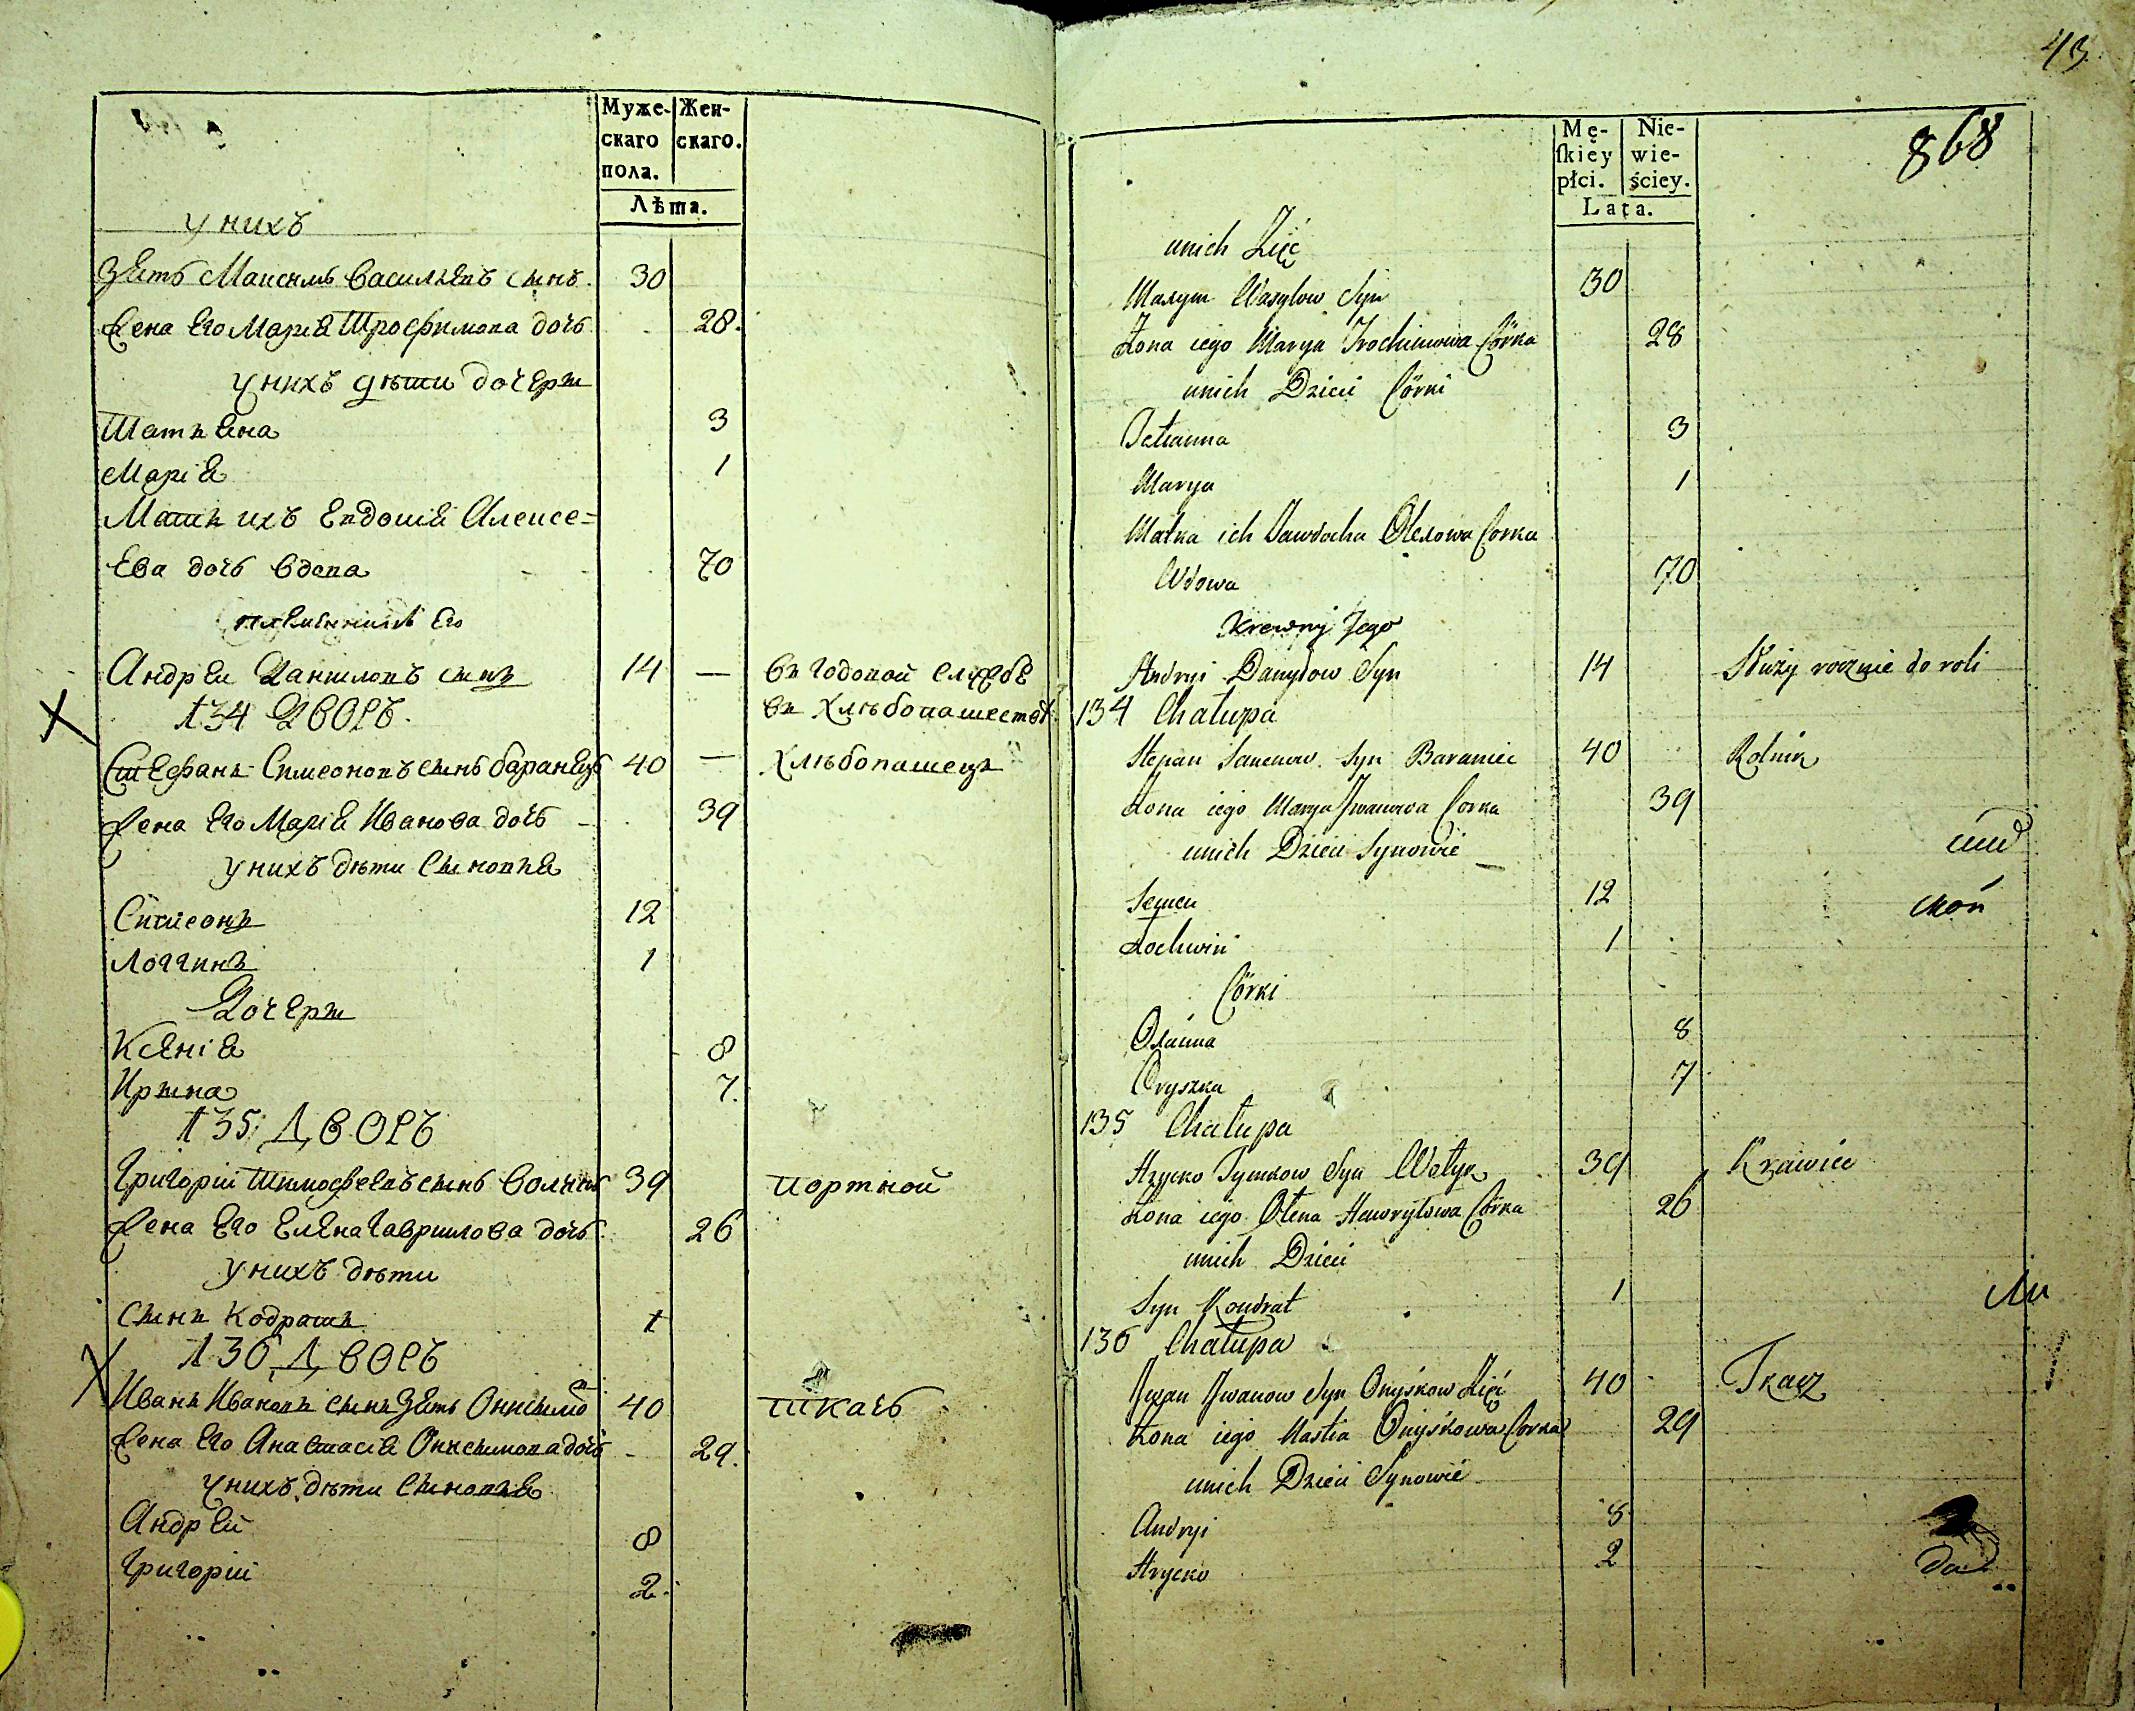 Муже-
скаго
пола.
Жен-
скаго.
Лѣта.
у нихъ
Зять Максимъ Васильевъ сынъ 30
Жена его Марія Трофимова дочь 28.
у нихъ дѣти дочери
Татіяна 3
Марія 1
Мать ихъ Евдокія Алексе=
ева дочь вдова 70
племенникъ его
Андрей Даниловъ сынъ 14 — въ годовой службе
134 Дворъ. въ хлѣбопашествѣ
Стефанъ Симеоновъ сынъ Баранецъ 40 — Хлѣбопашецъ
Жена его Марія Иванова дочь 39
у нихъ дѣти сыновья
Симеонъ 12
Логгинъ 1
Дочери
Ксенія 8
Ирина 7.
135 Дворъ
Григорій Тимофеевъ сынъ 39 портной
Жена его Елена Гаврилова дочь 26
у нихъ дѣти
сынъ Кодратъ 1
136 Дворъ
Иванъ Ивановъ сынъ зять 40 ткачь
Жена его Анастасія Онисимова дочь 29.
у нихъ дѣти сыновья
Андрей 8
Григорій 2.
43
868
Mę-
ſkiey
płci.
Nie-
wie-
ściey.
Lata.
unich Zięć
Maxym Wasylow Syn 30
Żona iego Marya Trochimowa Córka 28
unich Dzieci Córki
Tetianna 3
Marya 1
Matka ich Jawdocha Olexowa Corka
Wdowa 70
Krewny Jego
Andryi Danyłow Syn 14 Służy rocznie do roli
134 Chałupa
Stepan Semenow Syn Baraniec 40 Rolnik
Żona iego Marya Iwanowa Corka 39
unich Dzieci Synowie
Semen 12
Łochwin 1
Córki
8
Oryszka 7
135 Chałupa
Hrycko Tymkow Syn 39 Krawiec
Żona iego Ołena Hawryłowa Córka 26
unich Dzieci
Syn Kondrat 1
136 Chałupa
Iwan Iwanow Syn Onyśkow Zięć 40 Tkacz
Żona iego Nastia Onyśkowa Corka 29
unich Dzieci Synowie
Andryi 8
Hrycko 2